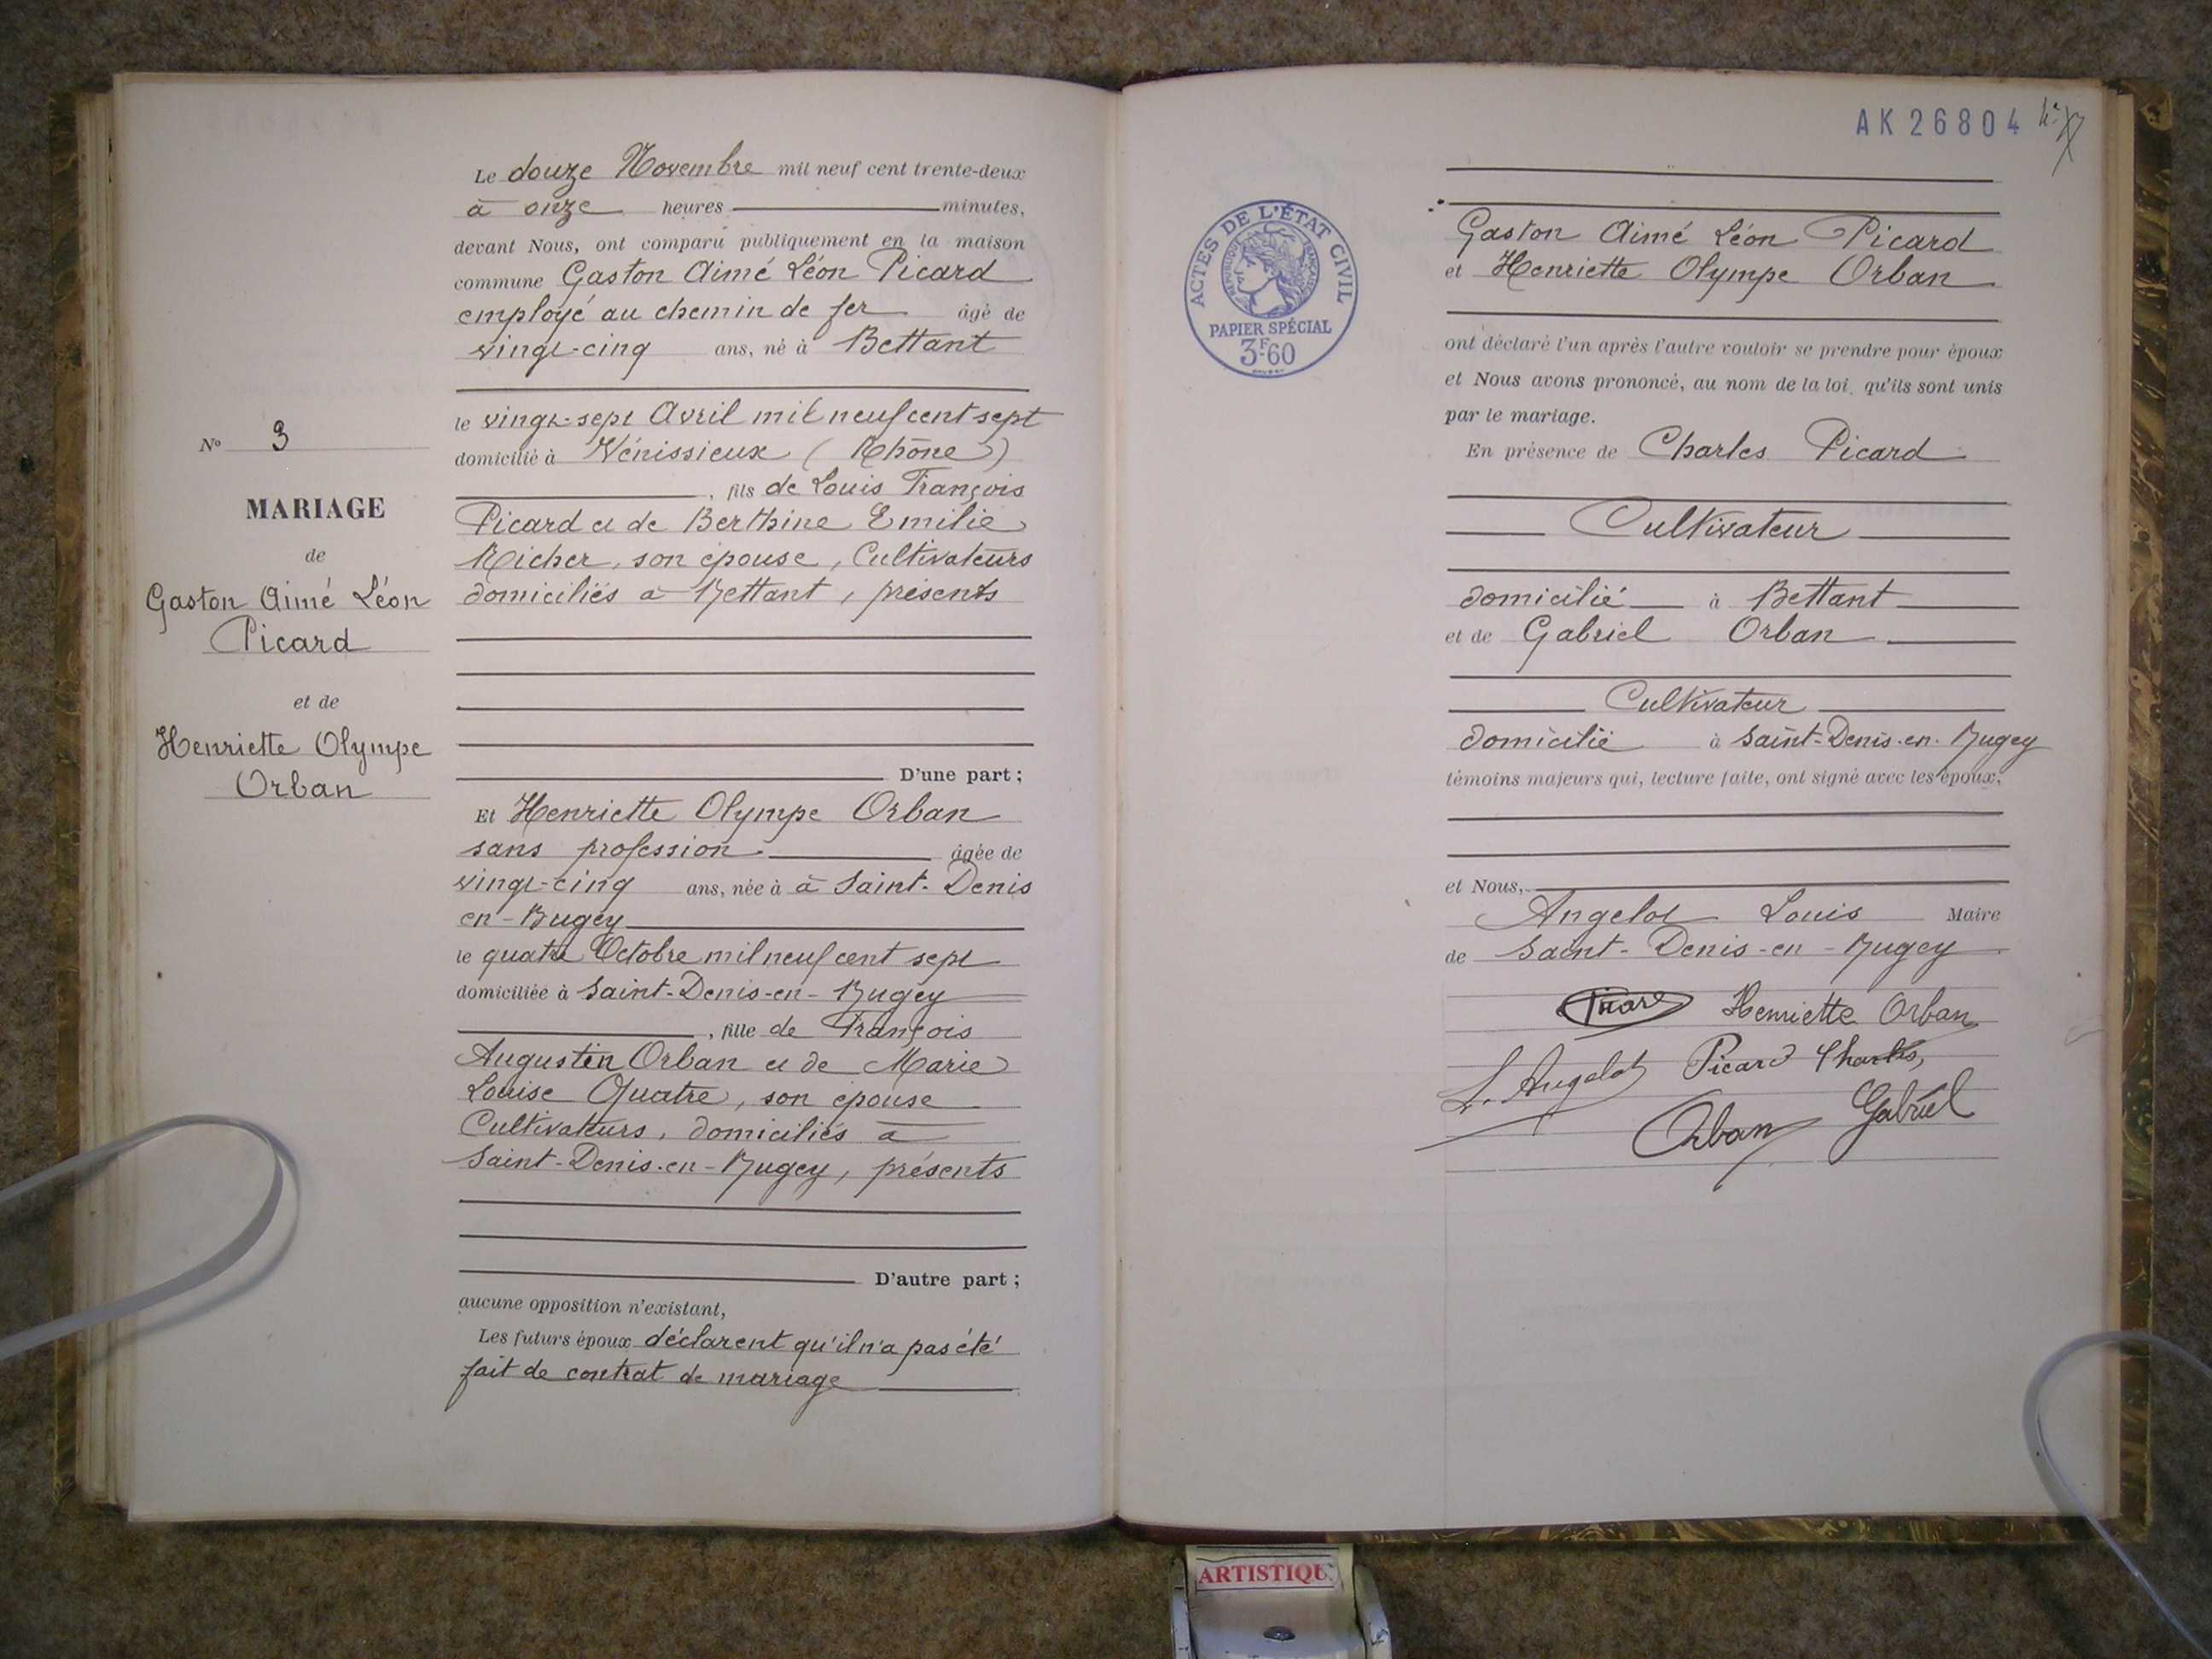 Le douze Novembre mil neuf cent trente-deux
à onze heures minutes,
devant Nous, ont comparu publiquement en la maison
commune Gaston Aimé Léon Picard
employé au chemin de fer âgé de
vingt-cinq ans, né à Bettant
le vingt-sept Avril mil neuf cent sept
domicilié à Vénissieux (Rhône)
, fils de Louis François
Picard et de Berthine Emilie
Richer, son épouse, Cultivateurs
domiciliés à Bettant, présents
D'une part ;
Et Henriette Olympe Orban
sans profession âgée de
vingt-cinq ans, née à à Saint-Denis
en-Bugey
le quatre Octobre mil neuf cent sept
domiciliée à Saint-Denis-en-Bugey
, fille de François
Augustin Orban et de Marie
Louise Quatre, son épouse
Cultivateurs, domiciliés à
Saint-Denis-en-Bugey, présents
D'autre part ;
aucune opposition n'existant,
Les futurs époux déclarent qu'il n'a pas été
fait de contrat de mariage
N° 3
MARIAGE
de
Gaston Aimé Léon
Picard
et de
Henriette Olympe
Orban
AK 26804
ACTES DE L'ÉTAT CIVIL
RÉPUBLIQUE FRANÇAISE
PAPIER SPÉCIAL
3F60
Gaston Aimé Léon Picard
et Henriette Olympe Orban
ont déclaré l'un après l'autre vouloir se prendre pour époux
et Nous avons prononcé, au nom de la loi, qu'ils sont unis
par le mariage.
En présence de Charles Picard
Cultivateur
domicilié à Bettant
et de Gabriel Orban
Cultivateur
domicilié à Saint-Denis-en-Bugey
témoins majeurs qui, lecture faite, ont signé avec les époux,
et Nous,
Angelot Louis Maire
de Saint-Denis-en-Bugey
Picard Henriette Orban
L. Angelot Picard Charles
Orban Gabriel
ARTISTIQU